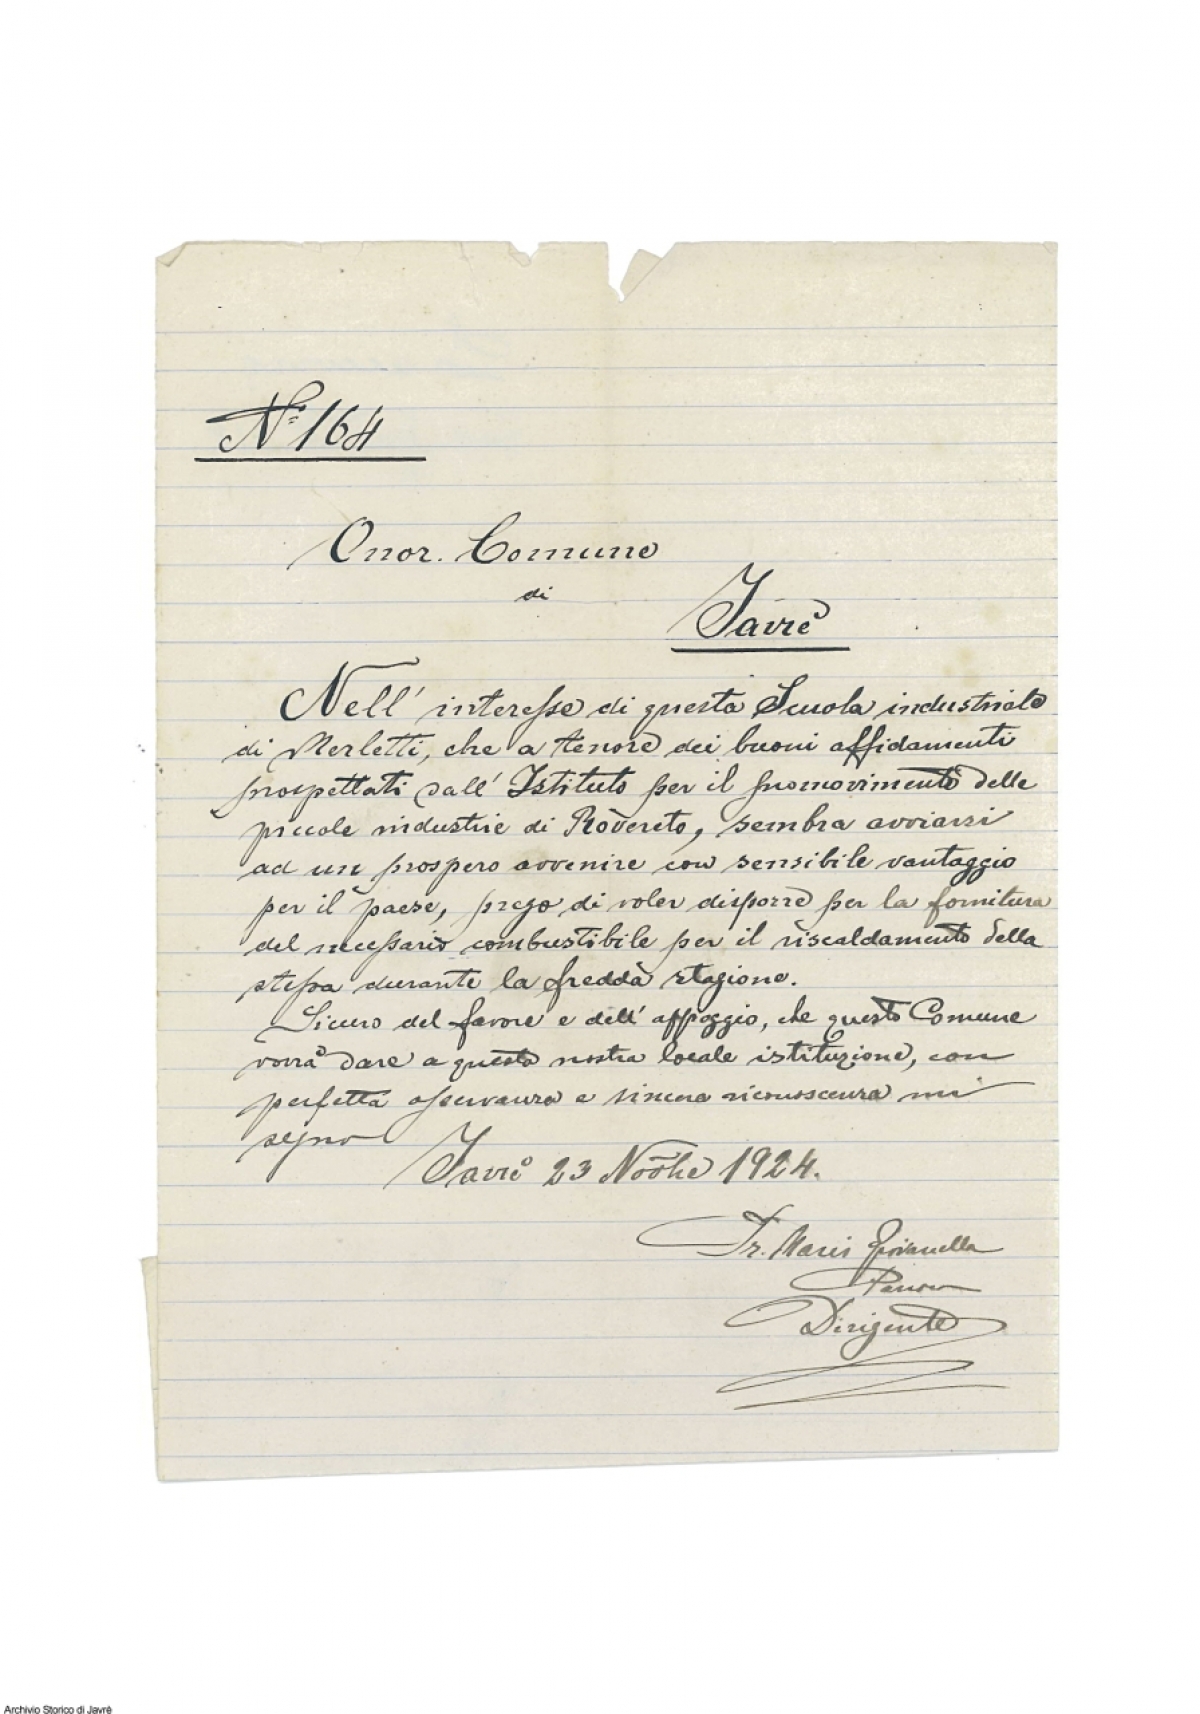 N° 164
Onor. Comune
di
Javrè
Nell' interesse di questa Scuola industriale
di Merletti, che a tenore dei buoni affidamenti
prospettati dall' Istituto per il promovimento delle
piccole industrie di Rovereto, sembra avviarsi
ad un prospero avvenire con sensibile vantaggio
per il paese, prego di voler disporre per la fornitura
del necessario combustibile per il riscaldamento della
stessa durante la fredda stagione.
Sicuro del favore e dell' appoggio, che questo Comune
vorrà dare a questa nostra locale istituzione, con
perfetta osservanza e sincera riconoscenza mi
segno
Javrè 23 Nobre 1924.
Giovanella
Dirigente
Archivio Storico di Javrè